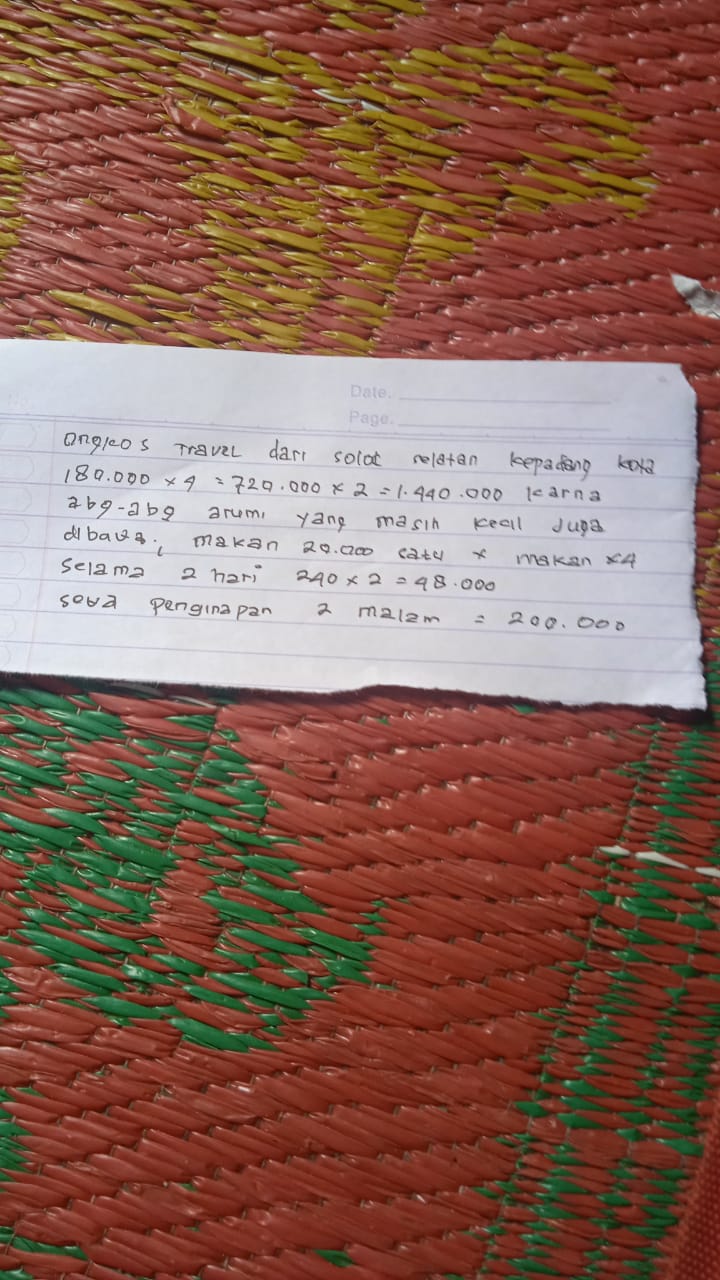 No.
Date.
Page.
ongkos Travel dari solot selatan kepadang kota
180.000 x 4 = 720.000 x 2 = 1.440.000 karna
abg-abg arumi yang masih kecil juga
dibawa, makan 20.000 satu x makan x4
selama 2 hari 240 x 2 = 48.000
sewa penginapan 2 malam = 200.000